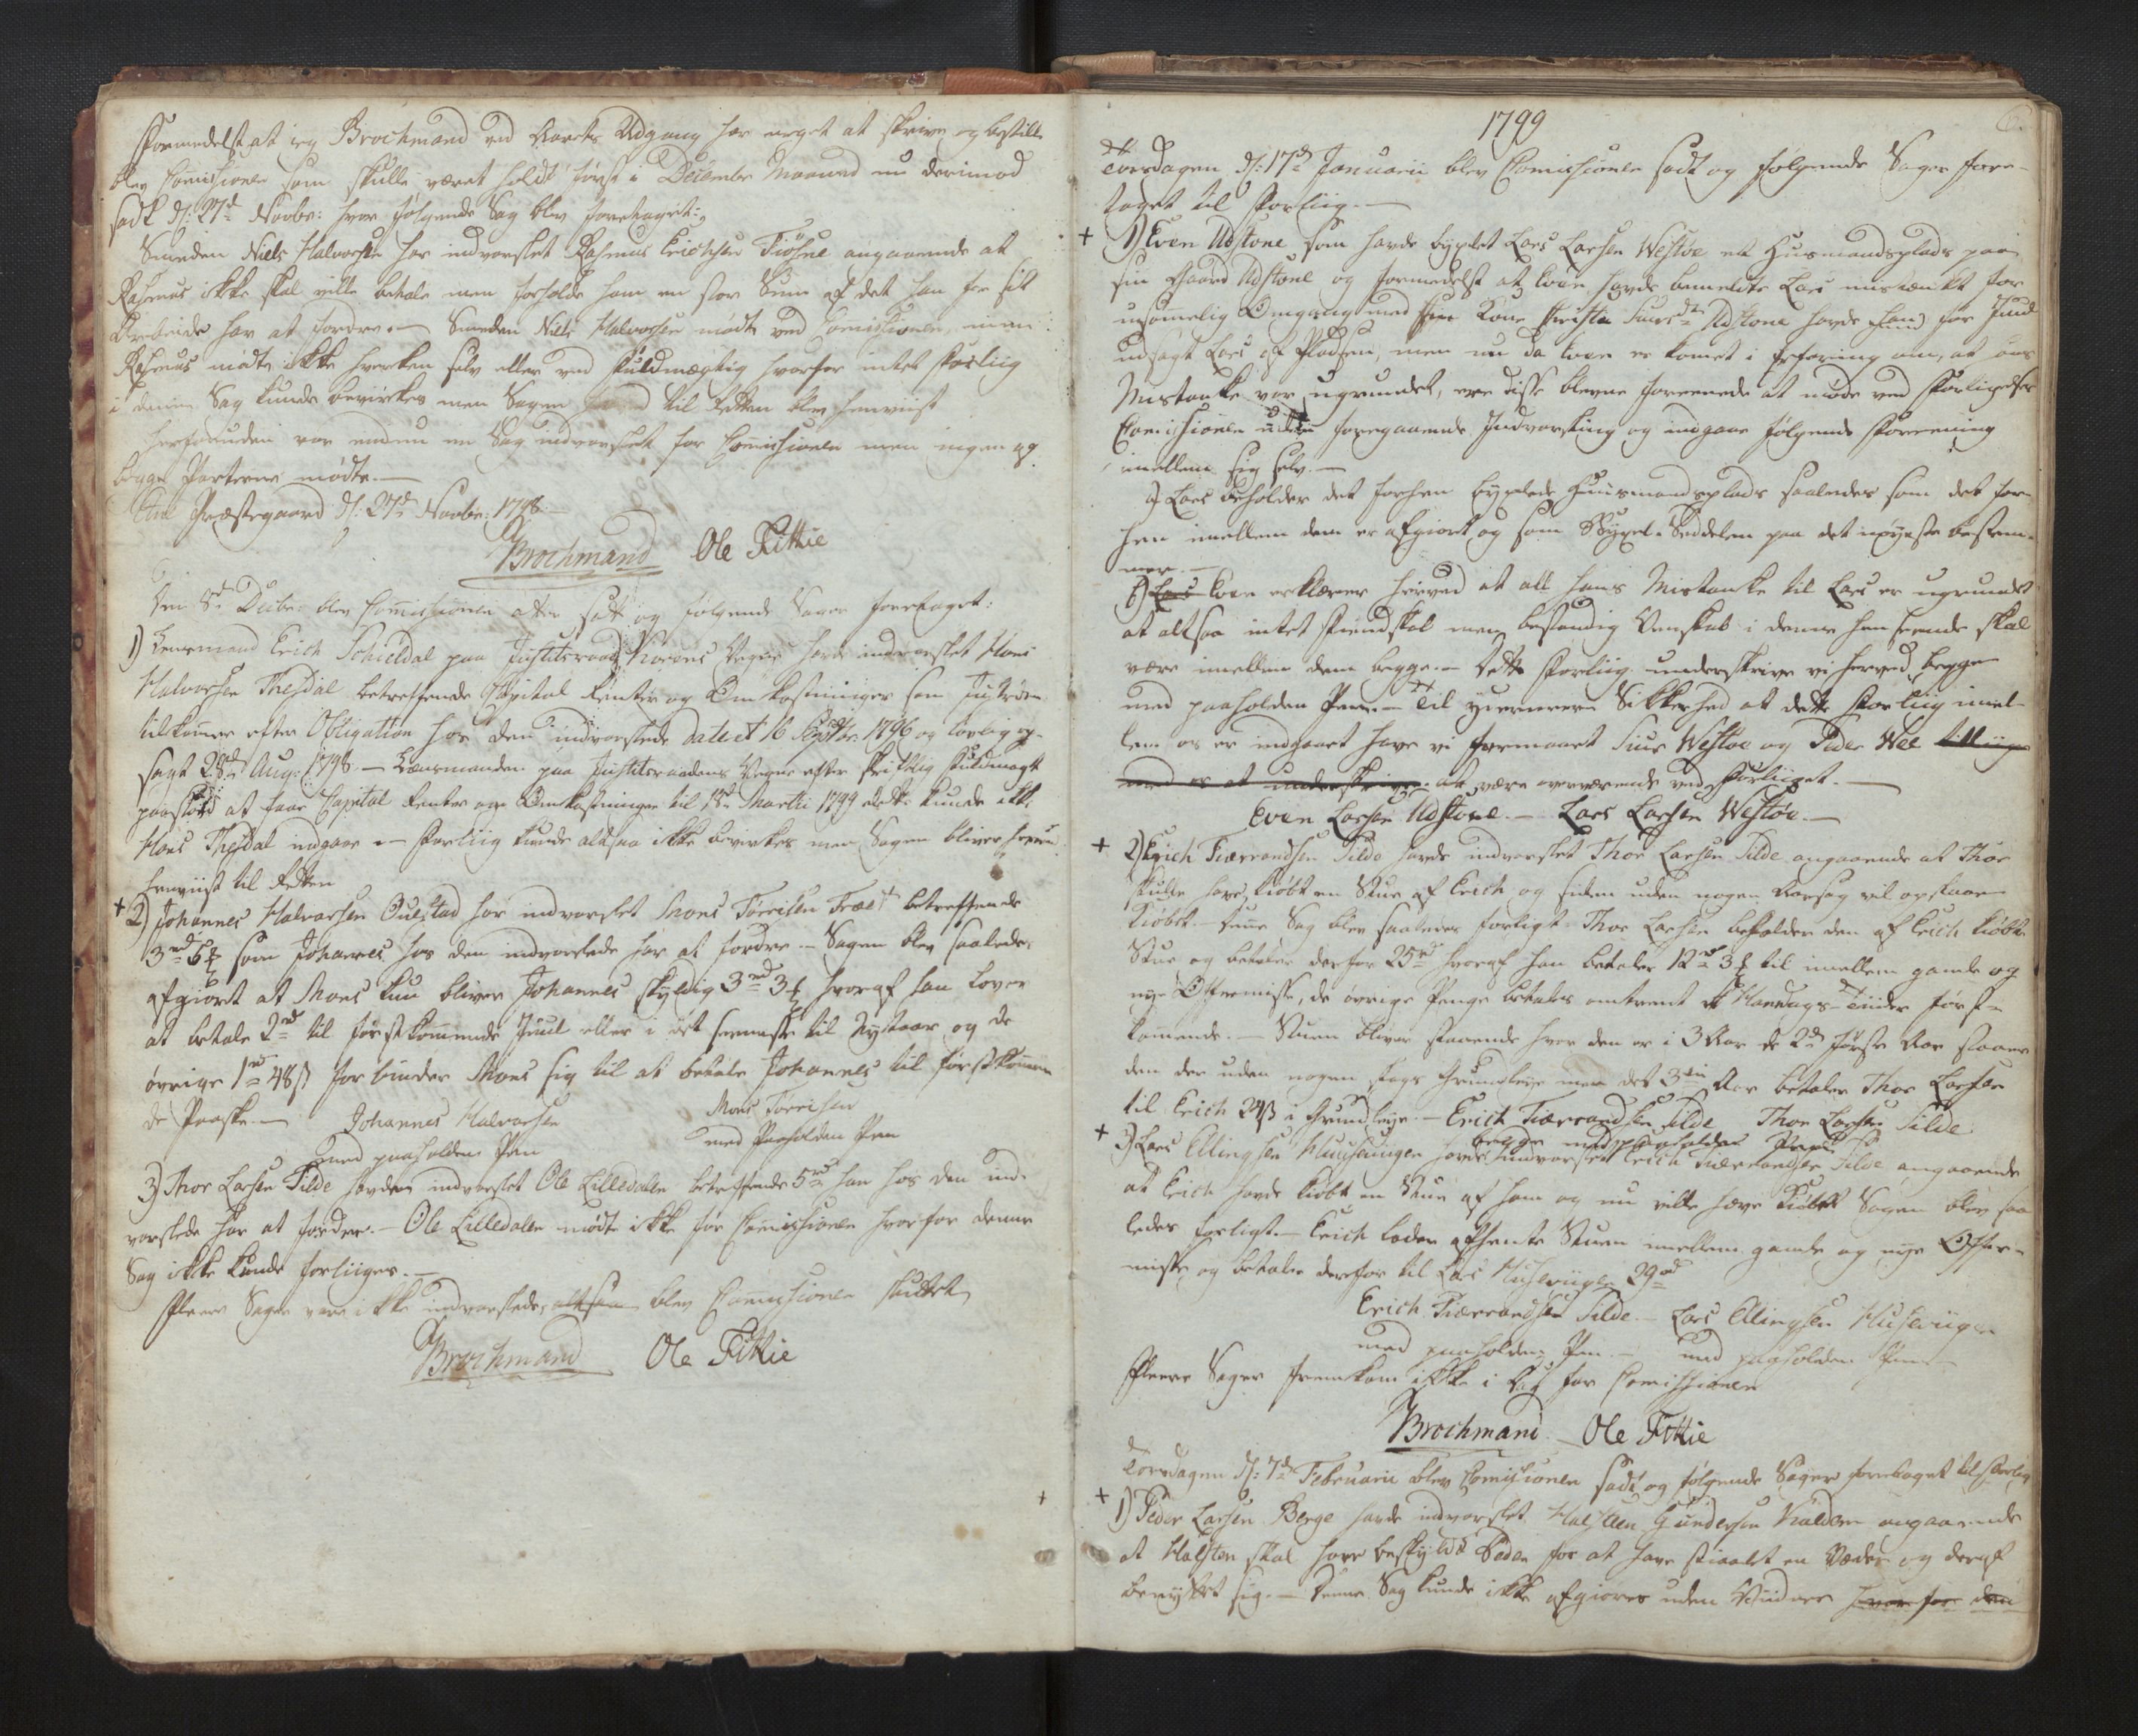 Formedelst at jeg Brochmand ved Aarets Udgang har meget at skrive og bestille
blev Commissionen som skulle været holdt først i December Maaned nu derimod
sadt d: 27de Novbr: hvor følgende Sag blev foretaget:
Smeden Niels Halvorsen har indvarslet Rasmus Erichsen Tiøsne angaaende at
Rasmus ikke skal ville betale men forholde ham en stor Sum af det han for sit
Arbeide har at fordre. — Smeden Niels Halvorsen mødte ved Commissionen, men
Rasmus mødte ikke hverken selv eller ved Fuldmægtig hvorfor intet Forliig
i denne Sag kunde bevirkes men Sagen til Retten blev henviist
herforuden var endnu en Sag indvarslet for Commissionen men ingen af
begge Parterne mødte. —
Præstegaard d: 27de Novbr: 1798.
Brochmand Ole Fittie
Den 8de Decbr: blev Commissionen atter sadt og følgende Sager foretaget:
1) Lensmand Erich Schieldal paa Justitsraad Vegne havde indvarslet Mons
Halvorsen Thesdal betreffende Capital Renter og Omkostninger som
tilkommer efter Obligation hos den indvarslede dateret 16 Septbr: 1796 og lovlig op-
sagt 28de Aug: 1798. — Lensmanden paa Justitsraadens Vegne efter skriftlig Fuldmagt
paastod at faae Capital Renter og Omkostninger til 1ste Martii 1799 dette kunde ikke
Mons Thesdal indgaae — Forliig kunde altsaa ikke bevirkes men Sagen bliver
henviist til Retten
+ 2) Johannes Halvorsen Ouestad har indvarslet Mons Torrisen Træet betreffende
3rd 5 ₰ som Johannes hos den indvarslede har at fordre. — Sagen blev saaledes
afgiort at Mons kun bliver Johannes skyldig 3rd 3 ₰ hvoraf han lover
at betale 2rd til førstkommende Juul eller i det seeneste til Nytaar og de
øvrige 1rd 48 ß forbinder Mons sig til at betale Johannes til førstkommen-
de Paaske. — Johannes Halvorsen Mons Torrisen
med paaholden Pen med Paaholden Pen
3) Thor Larsen Tilde havde indvarslet Ole Lilledalen betreffende 5rd han hos den ind-
varslede har at fordre. — Ole Lilledalen mødte ikke for Commissionen hvorfor denne
Sag ikke kunde forliiges. —
Fleere Sager vare ikke indvarslede, altsaa blev Commissionen sluttet
Brochmand Ole Fittie
1799
Torsdagen d: 17de Januarii blev Commissionen sadt og følgende Sager fore-
taget til Forliig. —
+ 1) Even Udstone som havde bygslet Lars Larsen Westøe et Huusmandsplads paa
sin Gaard Udstone og formedelst at Even havde bemeldte Lars mistænkt for
usømmelig Omgang med sin Kone Siursdtr Udstone havde han før Juul
udsagt Lars af Pladsen, men nu da Even er komet i Erfaring om, at
Mistanke var ugrundet, ere disse blevne foreenede at møde ved Forligelses
Commissionen uden foregaaende Indvarsling og indgaae følgende Foreening
imellem sig selv. —
Lars beholder det forhen bygslede Huusmandsplads saaledes som det for-
hen imellem dem er afgiort og som Bygsel-Seddelen paa det nøyeste bestem-
mer. —
Lars Even erklærer hierved at all hans Mistanke til Lars er ugrundet
at altsaa intet Fiendskab men bestandig Venskab i denne Henseende skal
være imellem dem begge. — Dette Forliig underskrive vi herved begge
med paaholden Pen. — Til ydermere Sikkerhed at dette Forliig imel-
lem os er indgaaet have vi formaaet Siur Westøe og Peder Wee
at være overværende ved Forliiget. —
Even Larsen Udstone. — Lars Larsen Westøe. —
+ 2) Erich Tiærrandsen Tilde havde indvarslet Thor Larsen Tilde angaaende at Thor
skulle have kiøbt en Stue af Erich og siden uden nogen Aarsag vil opstaae
Kiøbet. — Denne Sag blev saaledes forligt: Thor Larsen beholder den af Erich kiøbte
Stue og betaler derfor 25rd hvoraf han betaler 12rd 3 ₰ til imellem gamle og
nye Ottremisse, de øvrige Penge betales omtrent til først-
kommende. — Stuen bliver staaende hvor den er i 3 Aar de 2de første Aar staaer
den der uden nogen slags Grundleye men det 3die Aar betaler Thor Larsen
til Erich 24 ß i Grundleye. — Erich Tiærrandsen Tilde Thor Larsen Tilde
begge med paaholden Pen
+ 3) Lars Ellingsen Huusevigen havde indvarslet Erich Tiærrandsen Tilde angaaende
at Erich havde kiøbt en Stue af ham og nu ville hæve Kiøbet Sagen blev saa-
ledes forligt. — Erich lader afhente Stuen imellem gamle og nye Ottre-
misse, og betaler derfor til Lars Husevigen 29rd
Erich Tiærrandsen Tilde — Lars Ellingsen Husevigen
med paaholden Pen. — med paaholden Pen —
Fleere Sager fremkom ikke i Dag for Commissionen
Brochmand Ole Fittie
Torsdagen d: 7de Februarii blev Commissionen sadt og følgende Sager foretaget til Forlig
+ 1) Peder Larsen Berge havde indvarslet Halsten Gundersen angaaende
at Halsten skal have beskyldt Peder for at have stiaalet en Væder og deraf
benyttet sig. — Denne Sag kunde ikke afgiøres uden Vidner hvorfor den